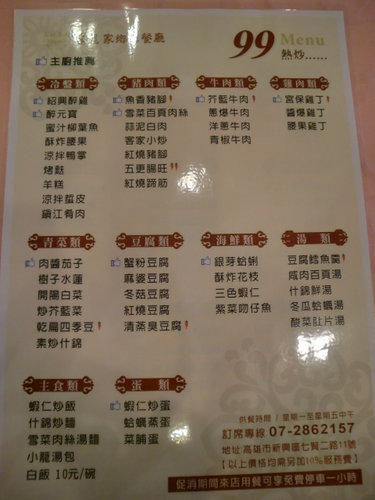 家鄉 餐廳
99 Menu
熱炒......
主廚推薦
冷盤類
紹興醉雞
醉元寶
蜜汁柳葉魚
酥炸腰果
涼拌鴨掌
烤麩
羊糕
涼拌蜇皮
鎮江肴肉
豬肉類
魚香豬腳
雪菜百頁肉絲
蒜泥白肉
客家小炒
紅燒豬腳
五更腸旺
紅燒蹄筋
牛肉類
芥藍牛肉
蔥爆牛肉
洋蔥牛肉
青椒牛肉
雞肉類
宮保雞丁
醬爆雞丁
腰果雞丁
青菜類
肉醬茄子
樹子水蓮
開陽白菜
炒芥藍菜
乾扁四季豆
素炒什錦
豆腐類
蟹粉豆腐
麻婆豆腐
冬菇豆腐
紅燒豆腐
清蒸臭豆腐
海鮮類
銀芽蛤蜊
酥炸花枝
三色蝦仁
紫菜吻仔魚
湯類
豆腐鱈魚羹
咸肉百頁湯
什錦鮮湯
冬瓜蛤蠣湯
酸菜肚片湯
主食類
蝦仁炒飯
什錦炒麵
雪菜肉絲湯麵
小籠湯包
白飯 10元/碗
蛋類
蝦仁炒蛋
蛤蠣蒸蛋
菜脯蛋
供餐時間 / 星期一至星期五中午
訂席專線 07-2862157
地址:高雄市新興區七賢二路11號
【以上價格均需另加10%服務費】
促消期間來店用餐可享免費停車一小時